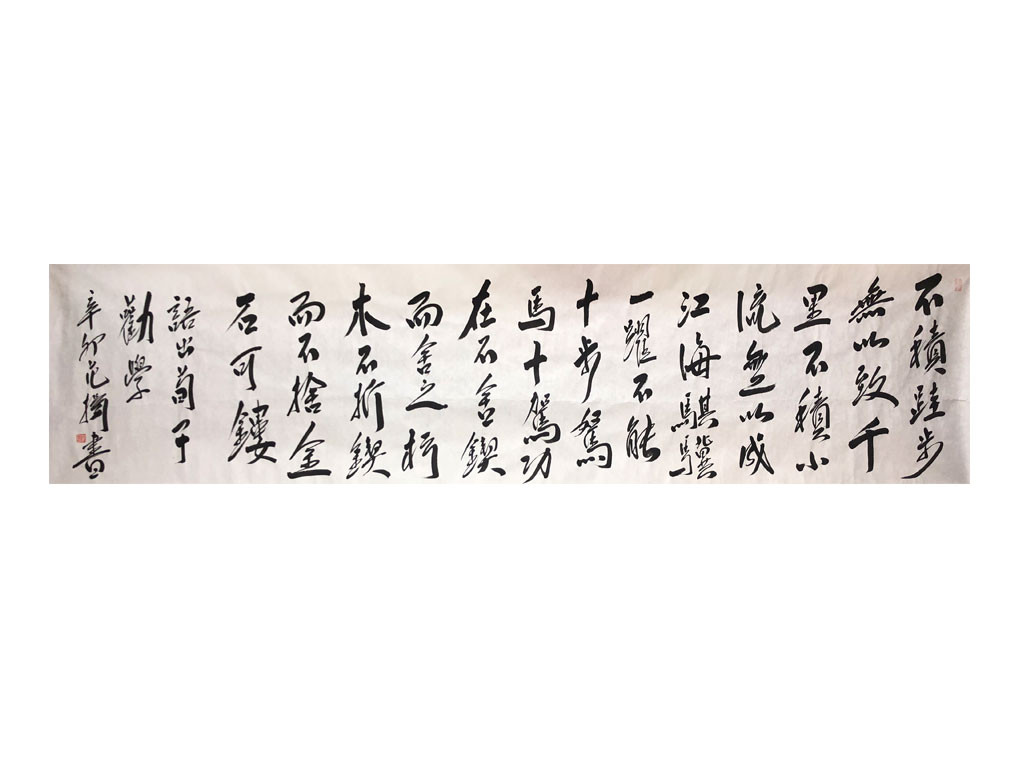 不積跬步
無以致千
里不積小
流無以成
江海騏驥
一躍不能
十步駑
馬十駕功
在不舍鍥
而舍之朽
木不折鍥
而不捨金
石可鏤
語出荀子
勸學
辛卯范書